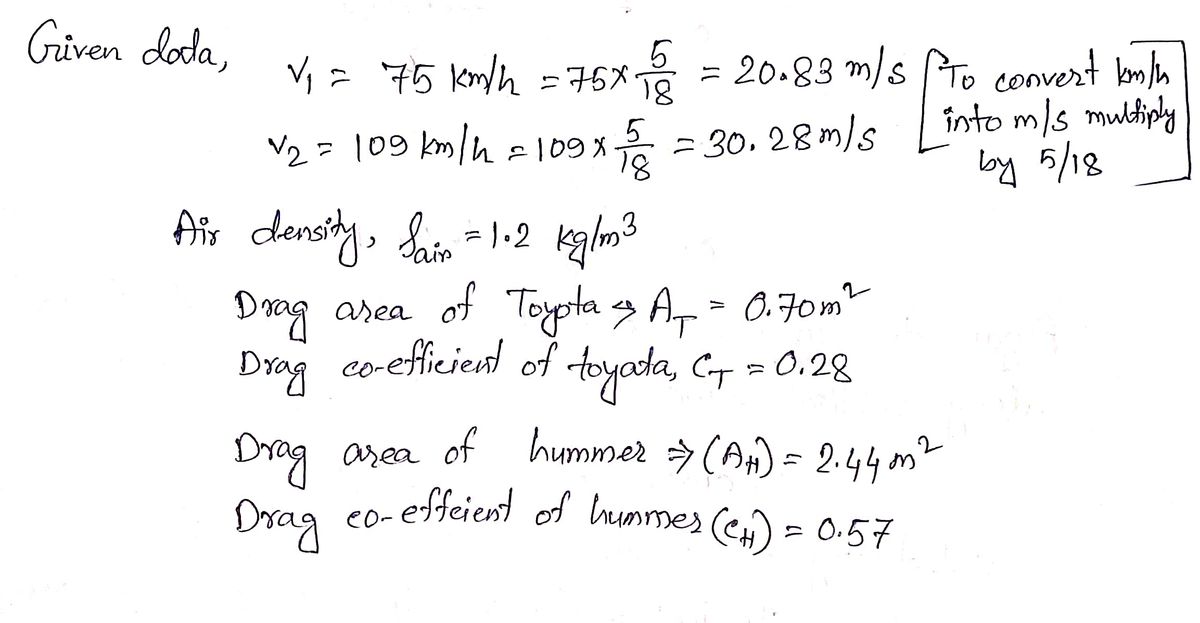 Given data,
V₁ = 75 km/h = 75 × 5/18 = 20.83 m/s [To convert km/h
into m/s multiply
by 5/18]
V₂ = 109 km/h = 109 × 5/18 = 30.28 m/s
Air density, ρair = 1.2 kg/m³
Drag area of Toyota ⇒ A_T = 0.70 m²
Drag co-efficient of toyata, C_T = 0.28
Drag area of hummer ⇒ (A_H) = 2.44 m²
Drag co-effeient of hummer (C_H) = 0.57